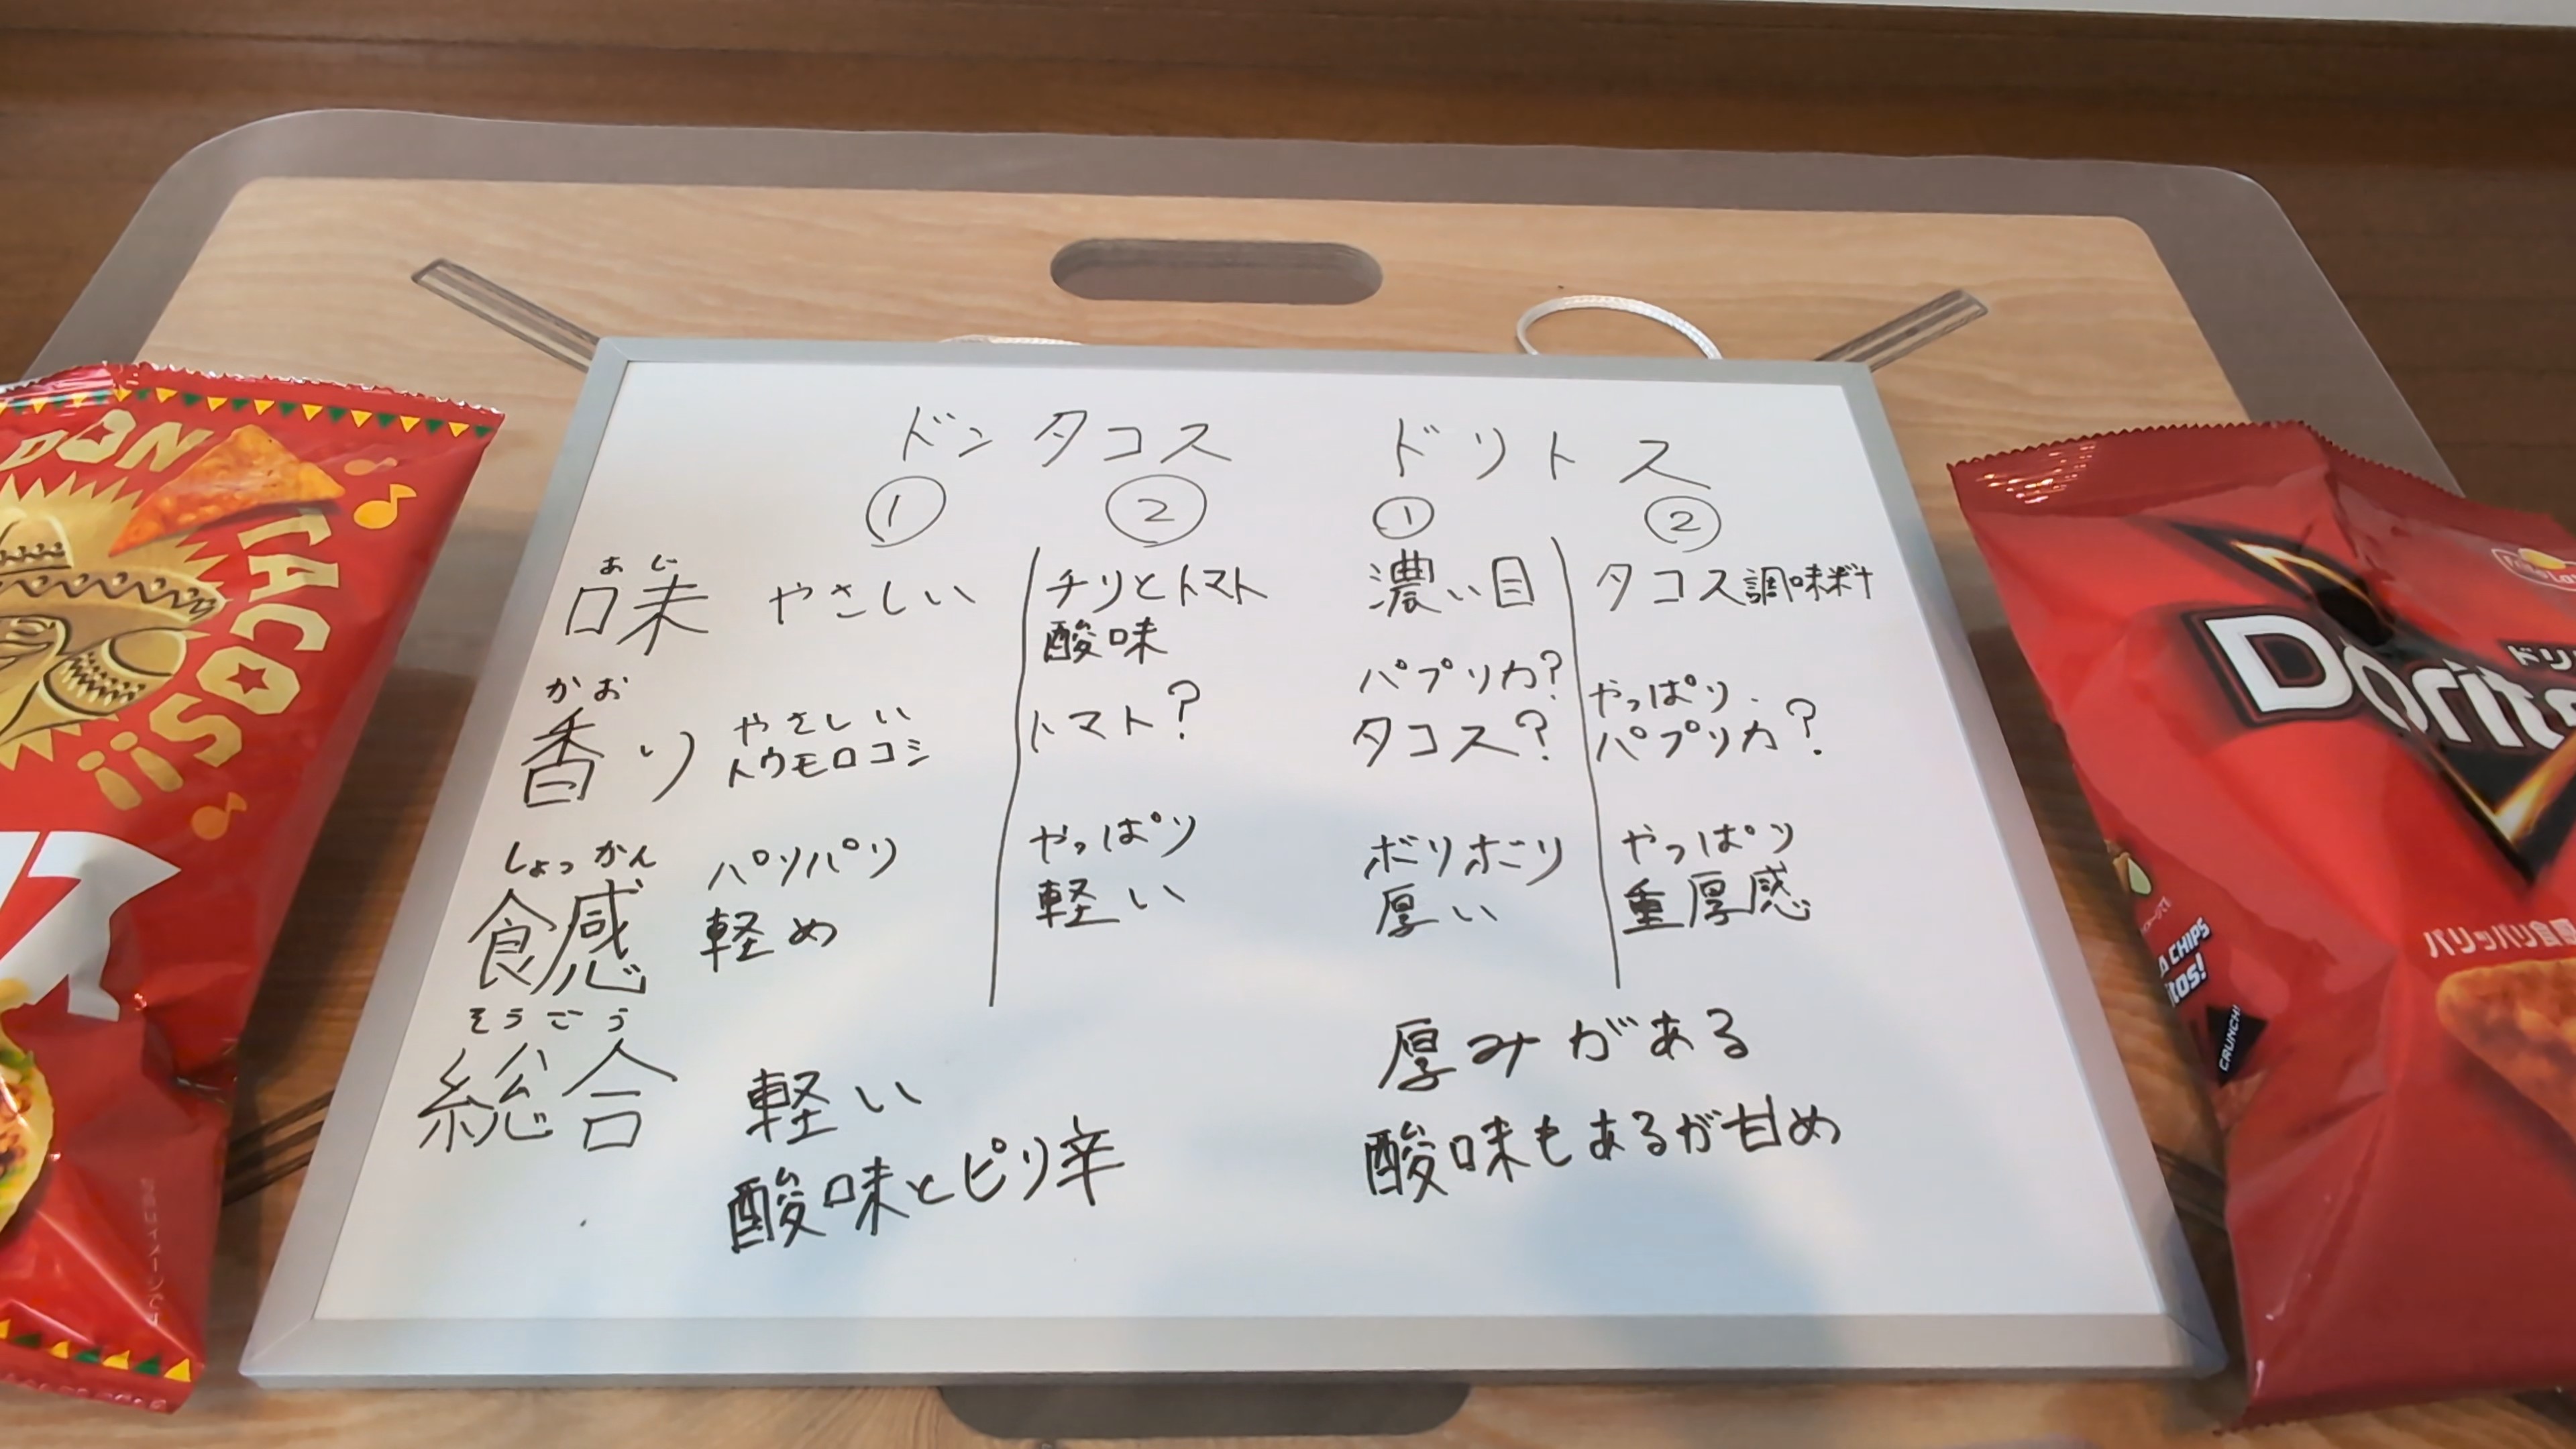 DON TACOS!!
ドンタコス
① ②
あじ
味 やさしい チリとトマト
酸味
かおり
香り やさしい
トウモロコシ
トマト?
しょっかん
食感 パリパリ
軽め
やっぱり
軽い
そうごう
総合 軽い
酸味とピリ辛
ドリトス
① ②
濃い目 タコス調味料
パプリカ?
タコス?
やっぱり
パプリカ?
ボリボリ
厚い
やっぱり
重厚感
厚みがある
酸味もあるが甘め
Dorito
ドリ
パリッパリ食
CHIPS
CRUNCH